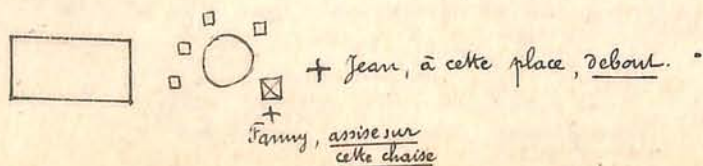 + Jean, à cette place, debout.
+
Fanny, assise sur
cette chaise